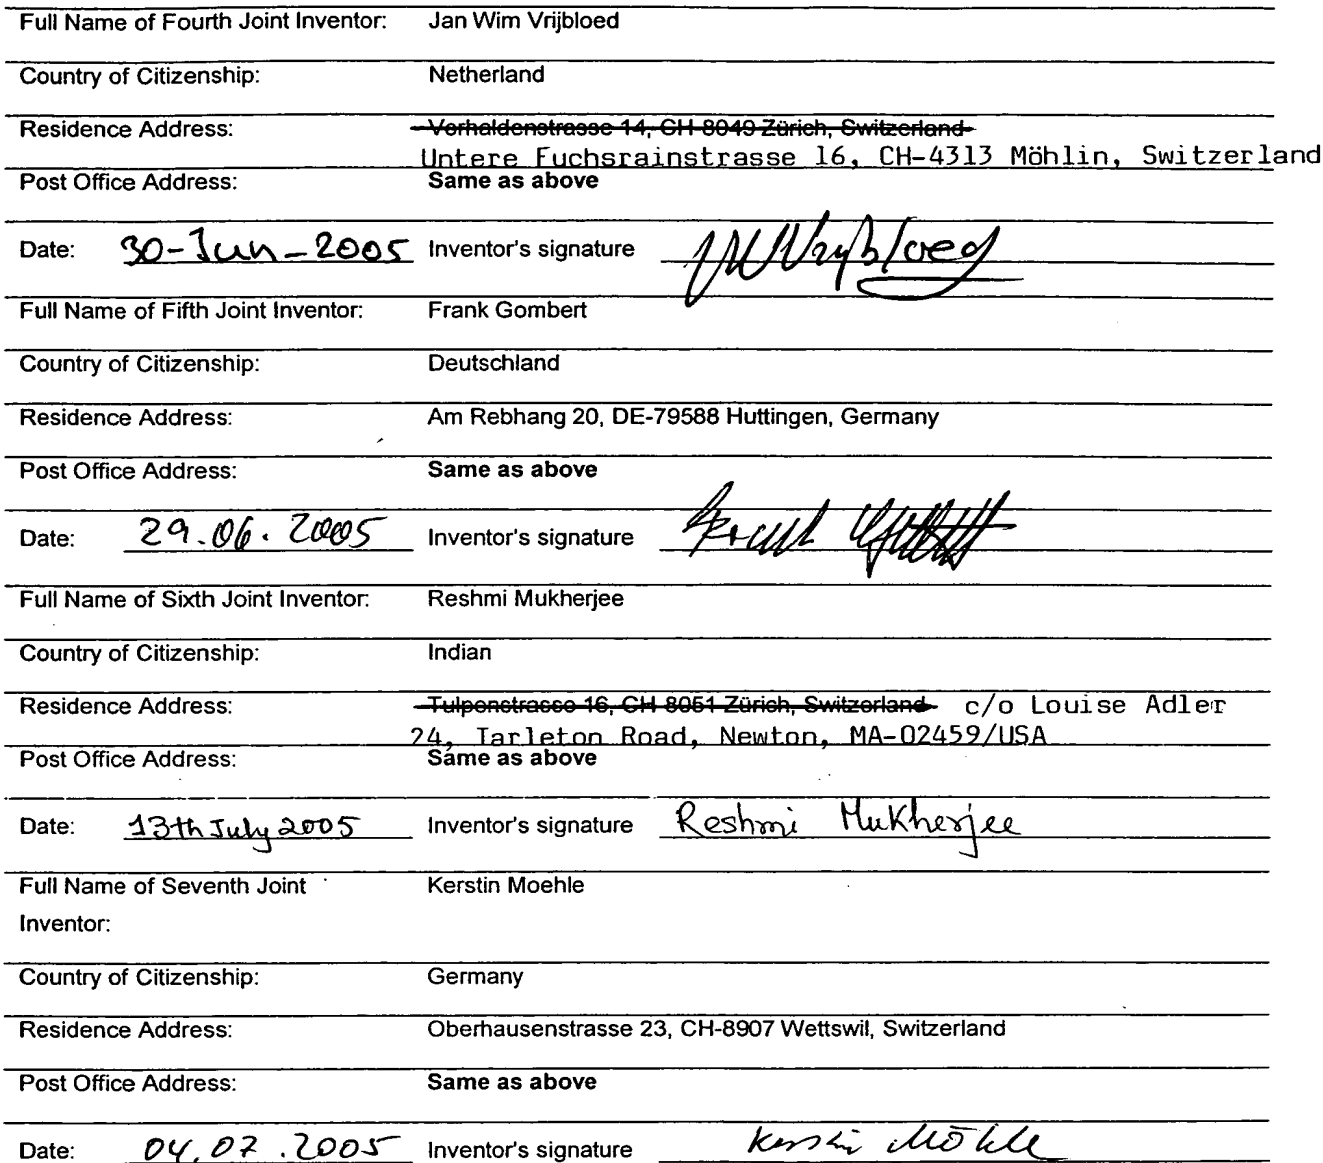 Full Name of Fourth Joint Inventor: Jan Wim Vrijbloed
Country of Citizenship: Netherland
Residence Address: Vorhaldenstrasse 14, CH-8049 Zürich, Switzerland
Untere Fuchsrainstrasse 16, CH-4313 Möhlin, Switzerland
Post Office Address: Same as above
Date: 30-Jun-2005 Inventor's signature JWVrijbloed
Full Name of Fifth Joint Inventor: Frank Gombert
Country of Citizenship: Deutschland
Residence Address: Am Rebhang 20, DE-79588 Huttingen, Germany
Post Office Address: Same as above
Date: 29.06.2005 Inventor's signature Frank
Full Name of Sixth Joint Inventor: Reshmi Mukherjee
Country of Citizenship: Indian
Residence Address: Tulpenstrasse 16, CH 8051 Zürich, Switzerland c/o Louise Adler
24, Tarleton Road, Newton, MA-02459/USA
Post Office Address: Same as above
Date: 13th July 2005 Inventor's signature Reshmi Mukherjee
Full Name of Seventh Joint Kerstin Moehle
Inventor:
Country of Citizenship: Germany
Residence Address: Oberhausenstrasse 23, CH-8907 Wettswil, Switzerland
Post Office Address: Same as above
Date: 04.07.2005 Inventor's signature Kerstin Möhle